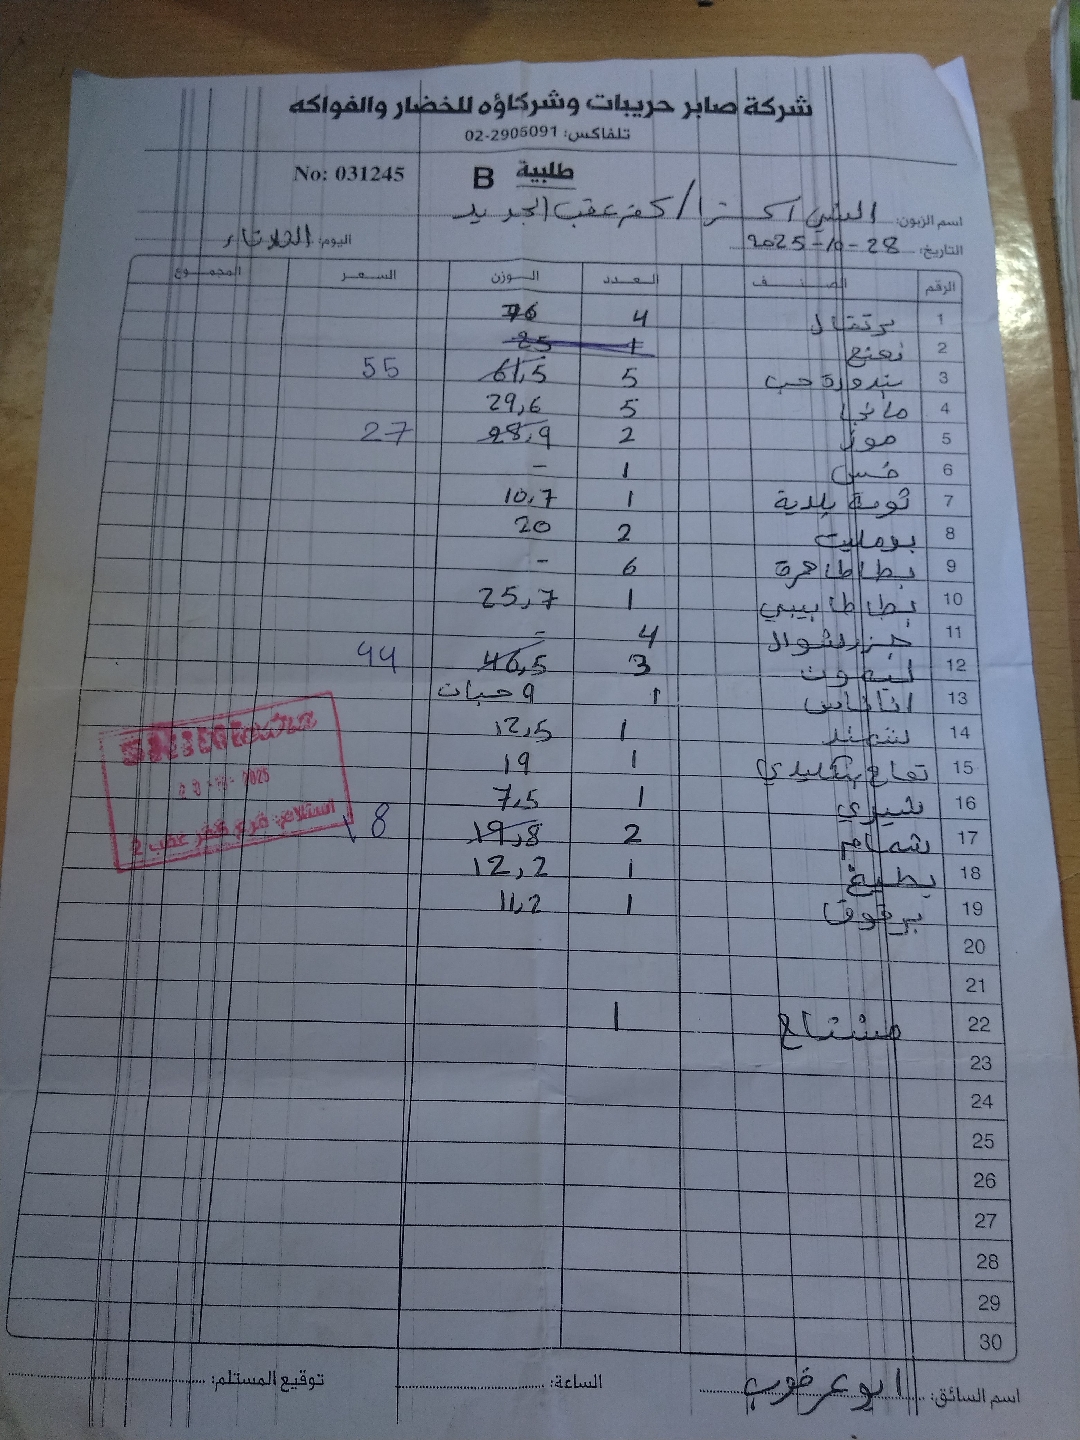 شركة صابر حريبات وشركاؤه للخضار والفواكه
تلفاكس: 02-2905091
طلبية B No: 031245
اسم الزبون: الشني اكسترا / كفر عقب الجديد
التاريخ: 28-10-2025 اليوم: الثلاثاء
الرقم الصنف العدد الوزن السعر المجموع
1 برتقال 4 76
2 نعنع 1 25
3 بندورة حب 5 61,5 55
4 مانجا 5 29,6
5 موز 2 28,9 27
6 خس 1 -
7 ثومة بلدية 1 10,7
8 بوملیت 2 20
9 بطاطا حمرة 6 -
10 بطاطا بيبي 1 25,7
11 جزر شوال 4 -
12 ليمون 3 46,5 44
13 اناناس 1 9 حبات
14 شمندر 1 12,5
15 تفاح سكليدي 1 19
16 شيري 1 7,5
17 شمام 2 19,8 18
18 بطيخ 1 12,2
19 برقوق 1 11,2
20
21
22 مشتاح 1
23
24
25
26
27
28
29
30
2025
استلامي فرع كفر عقب 2
اسم السائق: ابو عرقوب الساعة: توقيع المستلم: